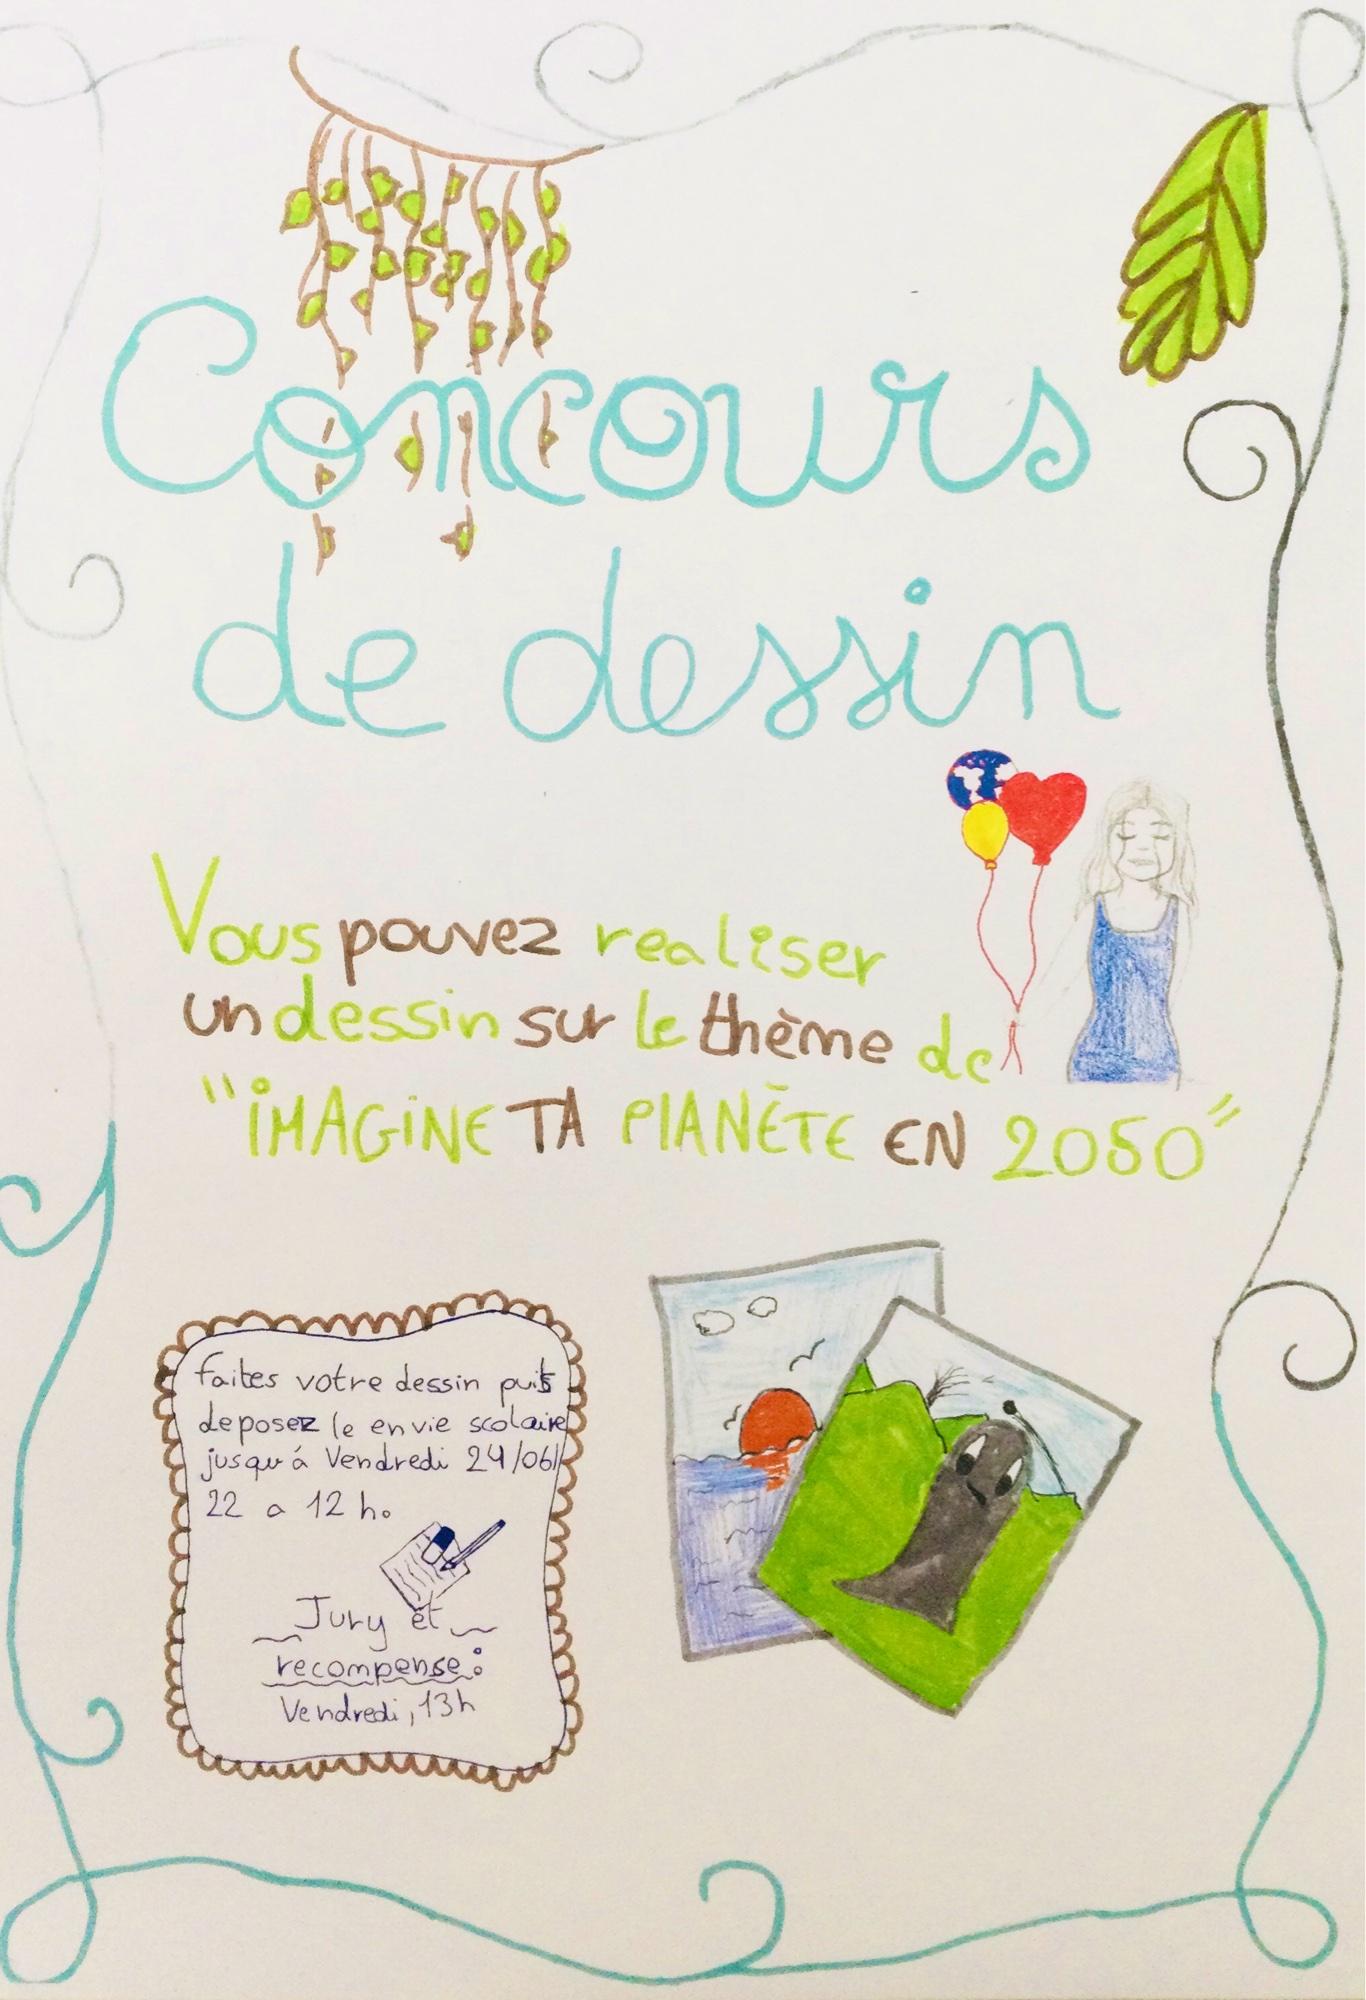 Concours
de dessin
Vous pouvez realiser
un dessin sur le thème de
"iMAGiNE TA PlANÈTE EN 2050"
faites votre dessin puis
deposez le en vie scolaire
jusqu'à Vendredi 24/06/
22 a 12 h.
Jury et
recompense:
Vendredi, 13h